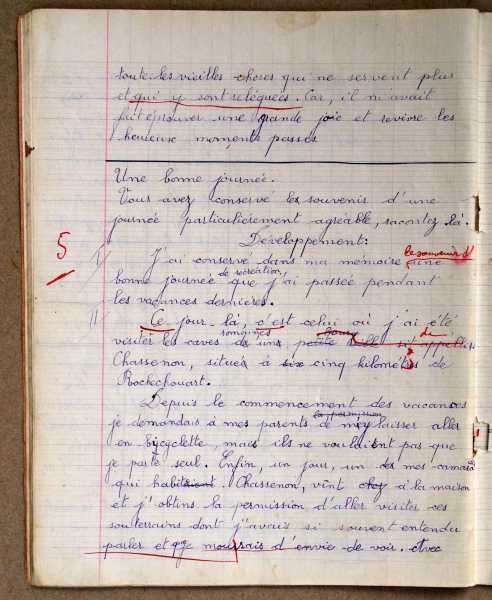 toutes les vieilles choses qui ne servent plus
et qui y sont reléguées. Car, il m'avait
fait éprouver une grande joie et revivre les
heureuse moments passés
Une bonne journée.
Vous avez conservé le souvenir d'une
journée particulièrement agréable, racontez là.
Développement:
5
I) J'ai conservé dans ma mémoire le souvenir d'une
de récréation,
bonne journée que j'ai passée pendant
les vacances dernières.
II Ce jour là, c'est celui où j'ai été
romaines
visiter les caves de une petite
Chassenon, située à six cinq kilomètres de
Rochechouart.
Depuis le commencement des vacances
la permission
je demandais à mes parents de m'y laisser aller
en bicyclette, mais ils ne voulaient pas que
je parte seul. Enfin, un jour, un des mes camarades
qui habitaient Chassenon, vint chez à la maison
et j'obtins la permission d'aller visiter ces
souterrains dont j'avais si souvent entendu
parler et que mourrais d'envie de voir. Avec